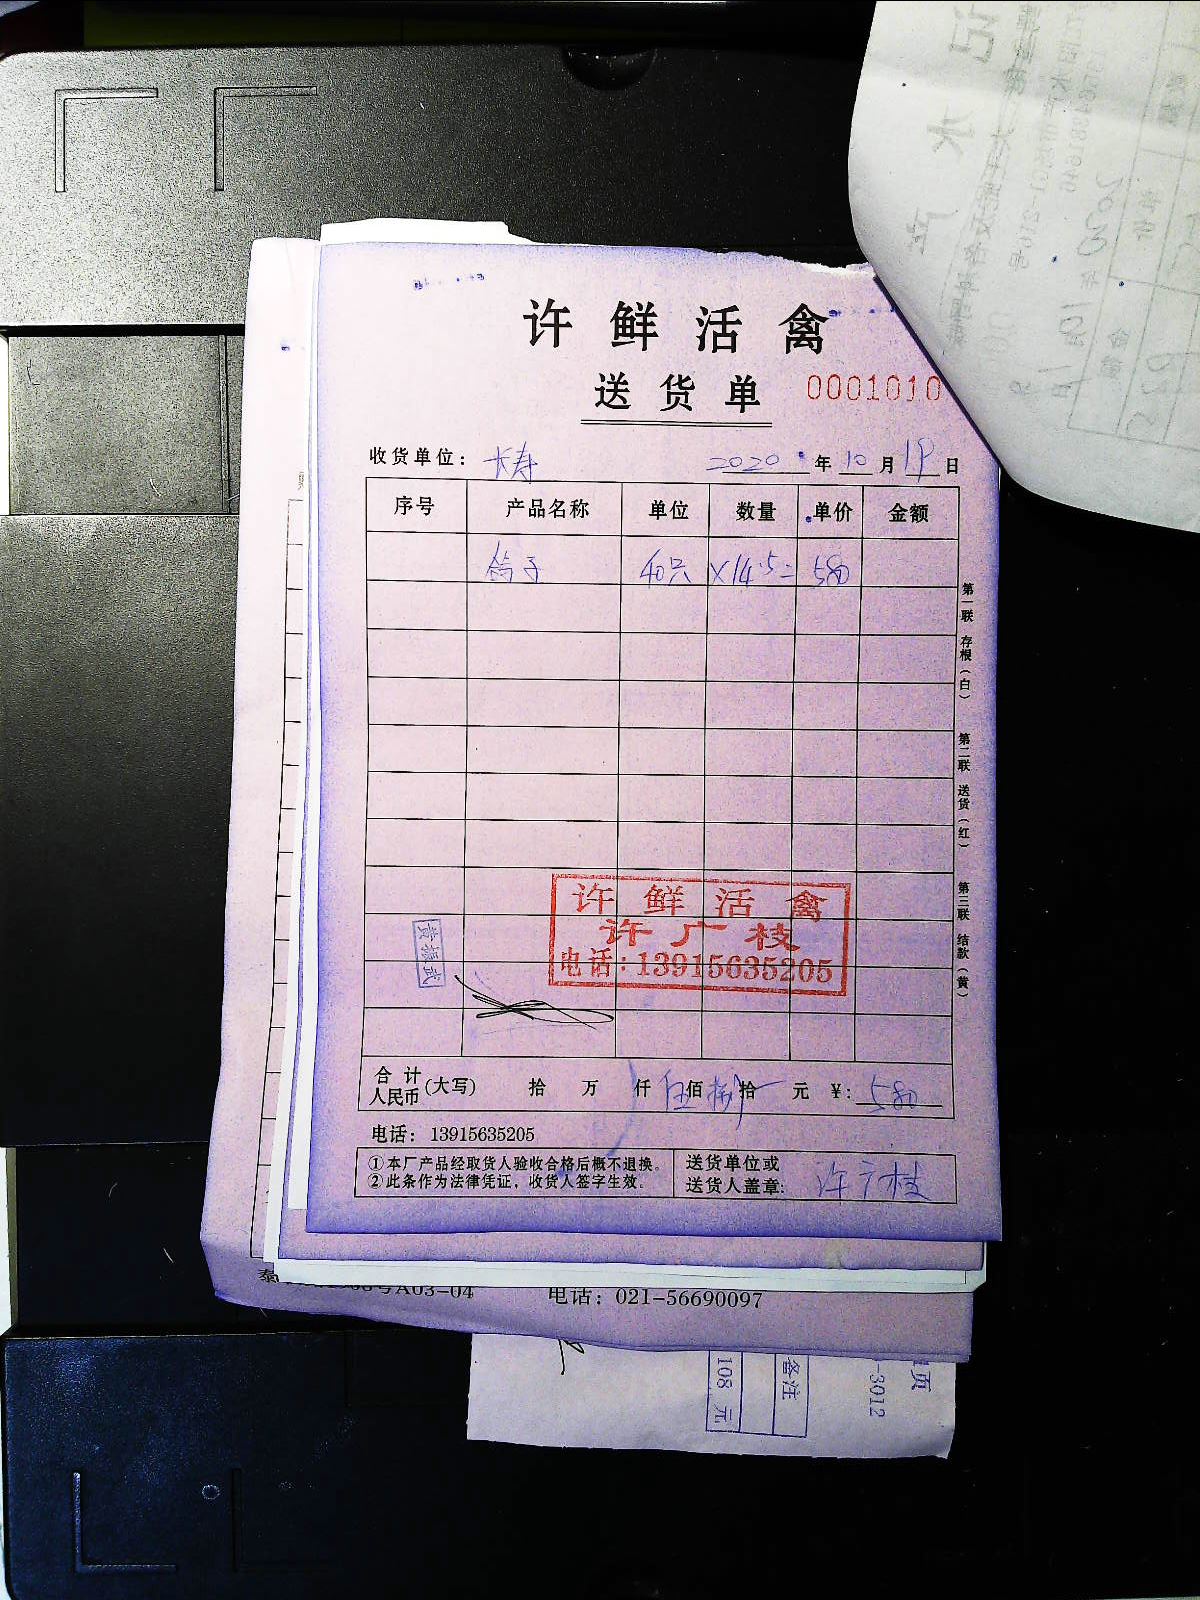 许鲜活禽
送货单
0001010
收货单位：长寿 2020年10月19日
序号 产品名称 单位 数量 单价 金额
鸽子 40只 ×14.5= 580
第一联 存根（白） 第二联 送货（红） 第三联 结款（黄）
许鲜活禽
许广枝
电话：13915635205
合计人民币(大写) 拾 万 仟 伍佰捌拾 元 ¥：580
电话：13915635205
①本厂产品经取货人验收合格后概不退换。
②此条作为法律凭证，收货人签字生效。
送货单位或
送货人盖章：许广枝
号A03-04 电话：021-56690097
备注
108 元
页
-3012